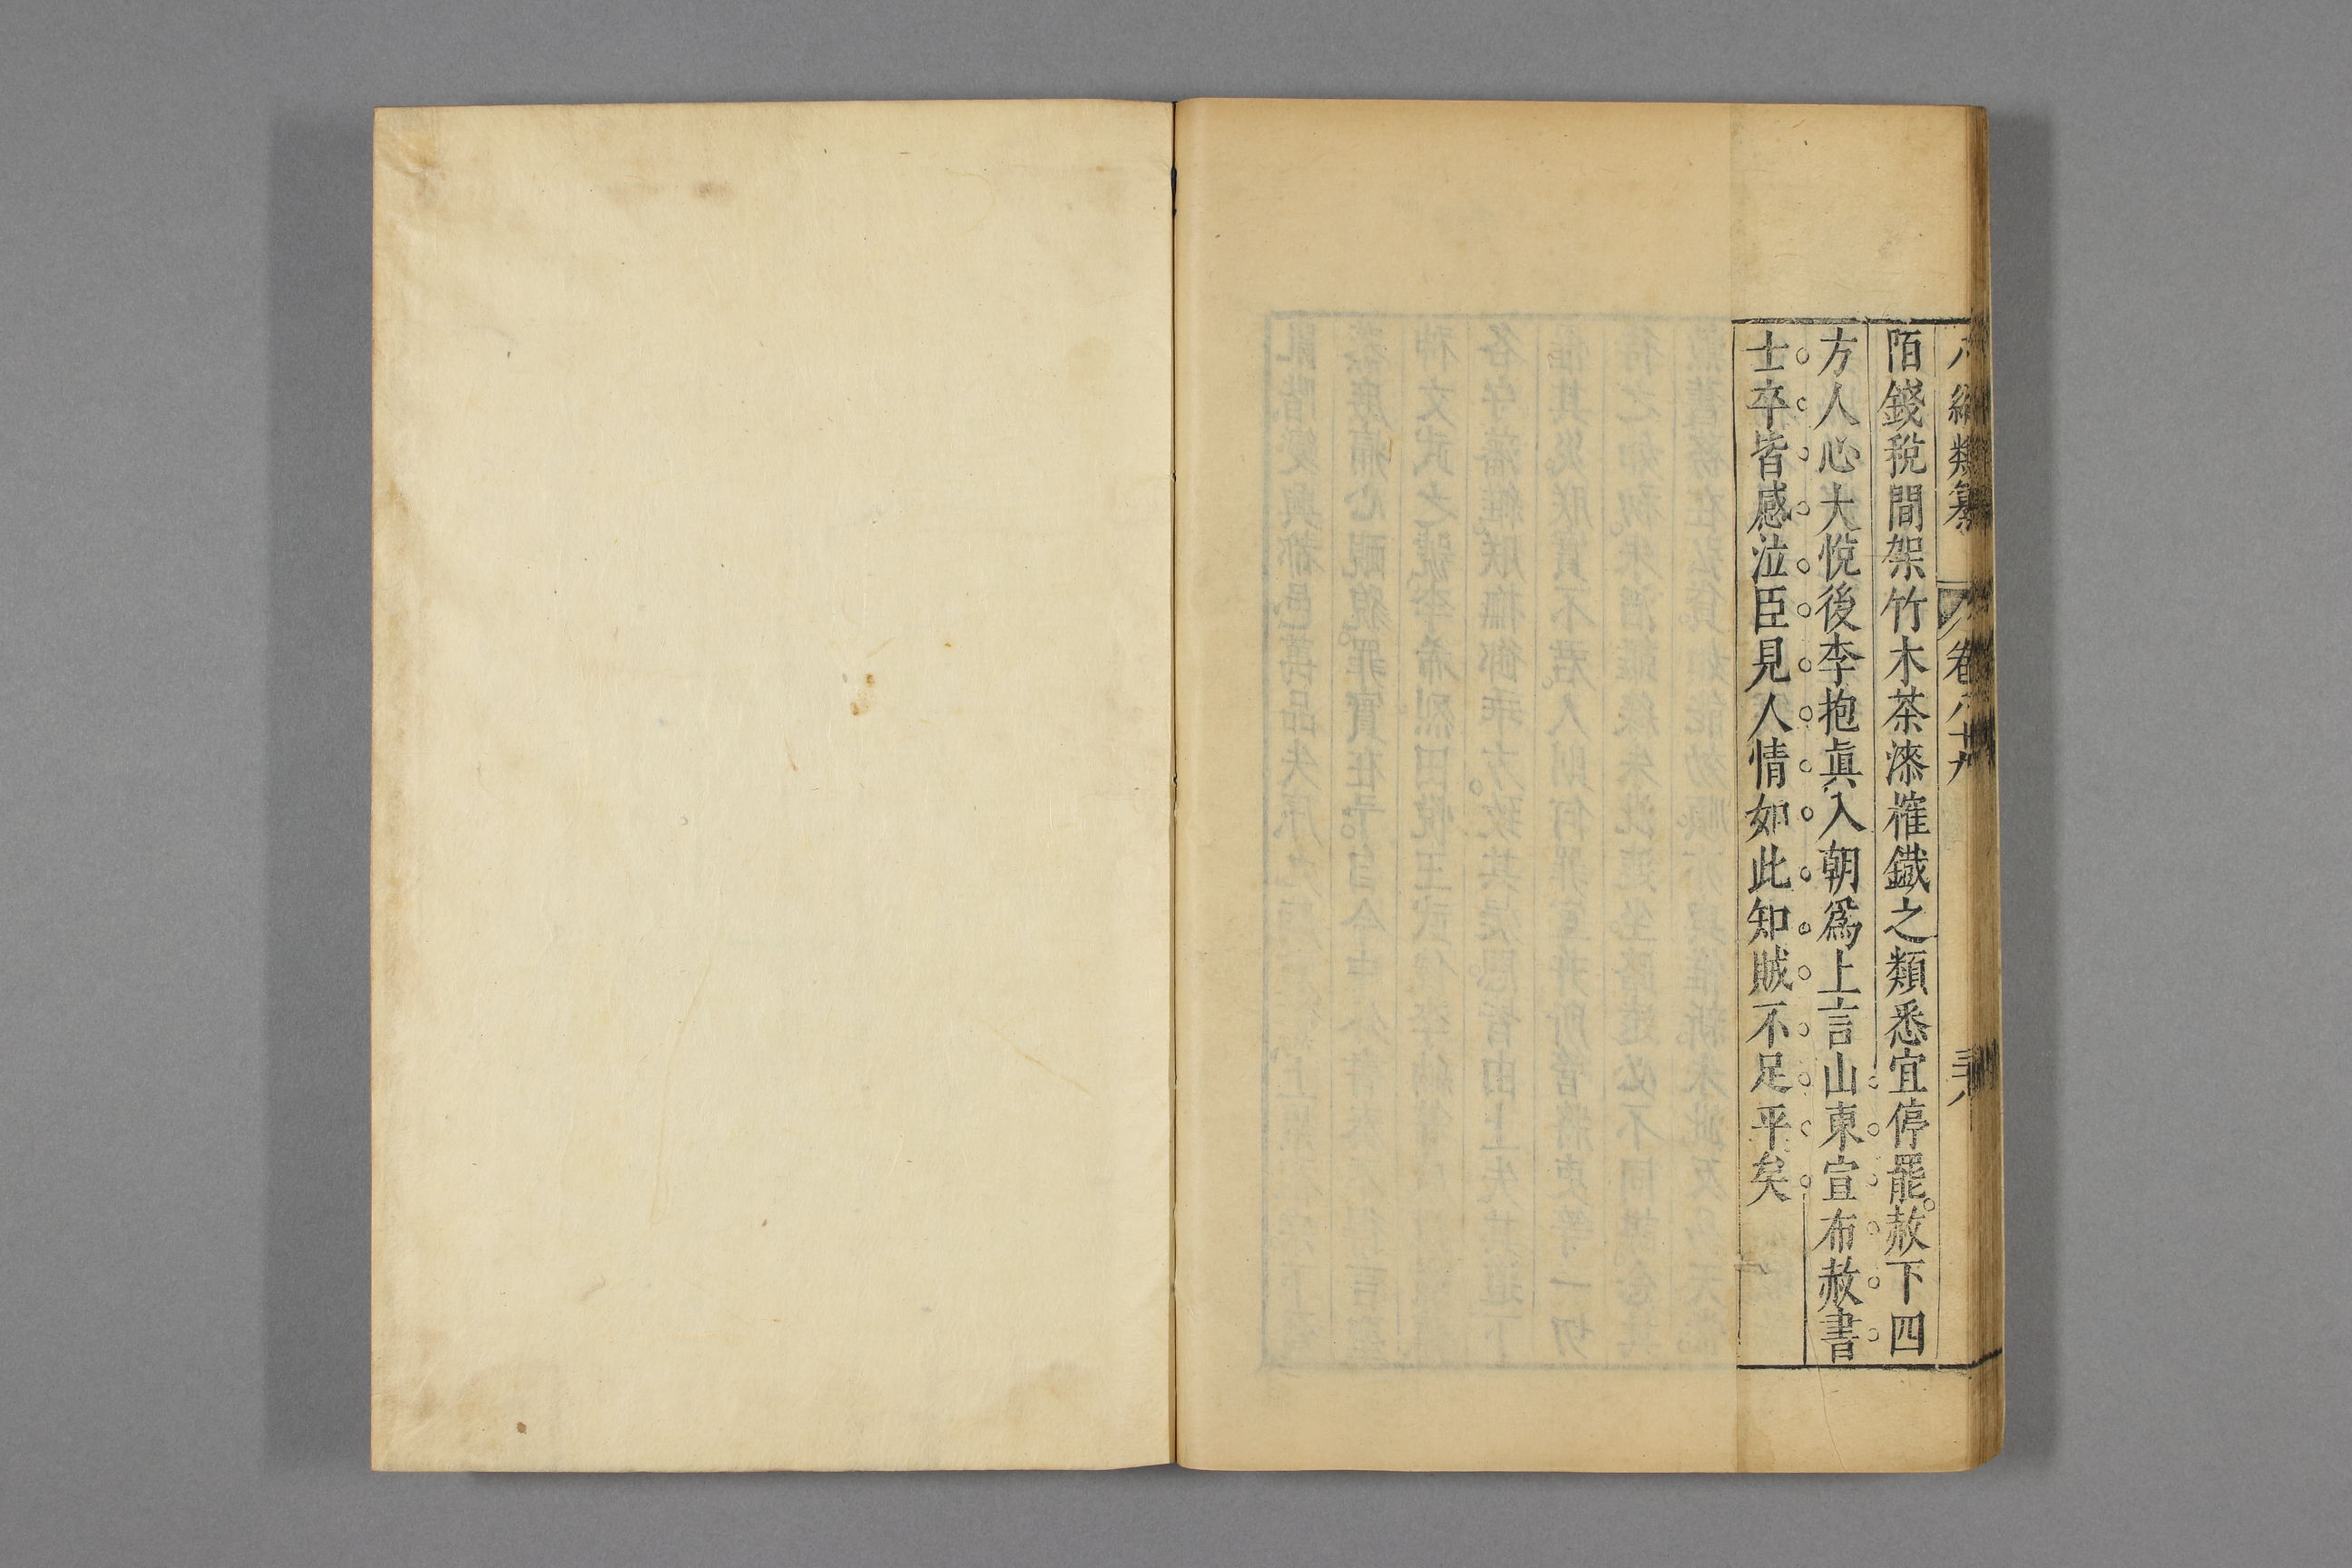 八編類纂 卷八十九 三十八
陌錢稅間架竹木茶漆榷鐵之類悉宜停罷。赦下四
方人心大悅後李抱眞入朝爲上言山東宣布赦書
士卒皆感泣臣見人情如此知賊不足平矣